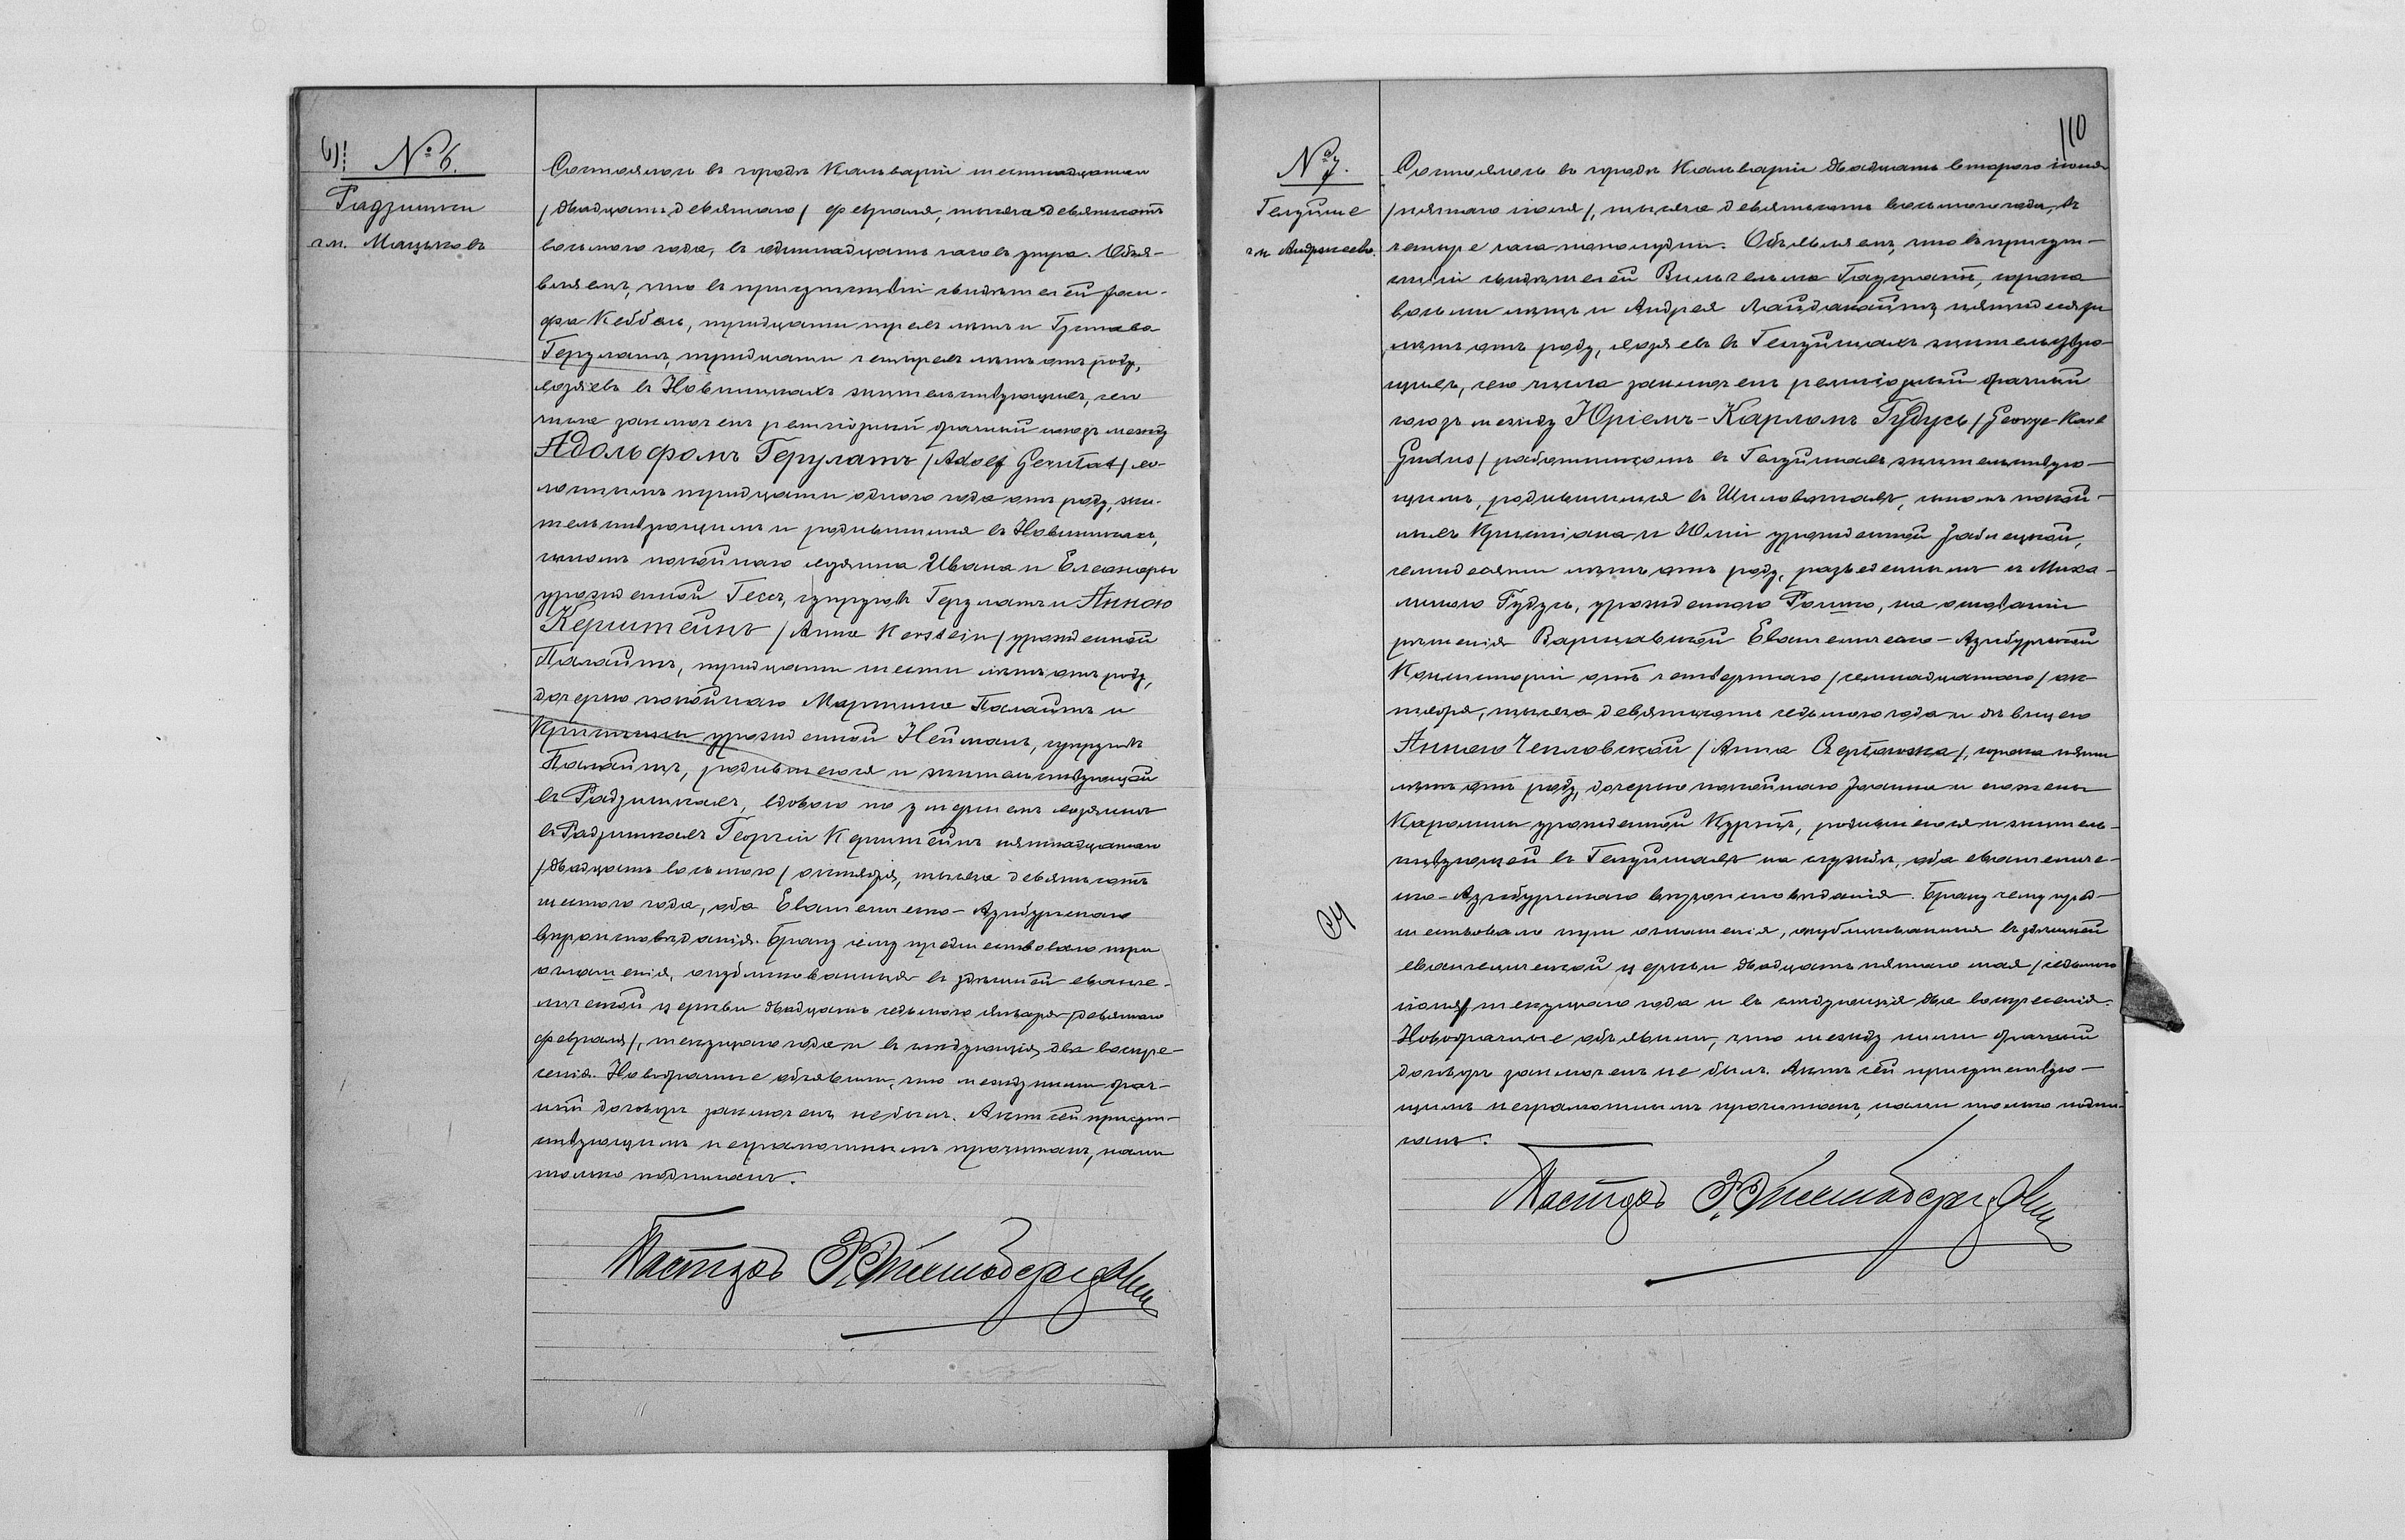 6)! № 6.
Радзишки
гм. Мацьковъ
Состоялось въ городѣ Кальваріи шестнадцатаго
/двадцать девятаго/ февраля, тысяча девятьсотъ
восьмого года, въ одиннадцать часовъ утра. Объя-
вляемъ, что въ присутствіи свидѣтелей Іоси-
фа Кеббель, тридцати трехъ лѣтъ и Густава
Герулатъ, тридцати четырехъ лѣтъ отъ роду,
хозяевъ въ Новишкахъ жительствующихъ, сего
числа заключенъ религіозный брачный союзъ между
Адольфомъ Герулатъ /Adolf Gerulat/ хо-
лостымъ тридцати одного года отъ роду, жи-
тельствующимъ и родившимся въ Новишкахъ,
сыномъ покойнаго хозяина Ивана и Елеоноры
урожденной Гессъ, супруговъ Герулатъ и Анною
Керштейнъ /Anna Kerstein/ урожденной
Палайтъ, тридцати шести лѣтъ отъ роду,
дочерью покойнаго Мартина Палайтъ и
Кристины урожденной Нейманъ, супруговъ
Палайтъ, родившеюся и жительствующей
въ Радзишкахъ, вдовою по умершемъ хозяинѣ
въ Радзишкахъ Георгіи Керштейнъ пятнадцатаго
/двадцать восьмого/ октября, тысяча девятьсотъ
шестого года, оба Евангелическо-Аугсбургскаго
вѣроисповѣданія. Браку сему предшествовало три
оглашенія, опубликованныя въ здѣшней еванге-
лической церкви двадцать седьмого января /девятаго
февраля/, текущаго года и въ слѣдующія два воскре-
сенія. Новобрачные объявили, что между ними брач-
ный договоръ заключенъ не былъ. Актъ сей присут-
ствующимъ неграмотнымъ прочитанъ, нами
только подписанъ.
Пасторъ
110
№ 7.
гм. Андржеево.
Состоялось въ городѣ Кальваріи двадцать второго іюня
/пятаго іюля/, тысяча девятьсотъ восьмого года, въ
четыре часа пополудни. Объявляемъ, что въ присут-
ствіи свидѣтелей Вильгельма сорока
восьми лѣтъ и Андрея пятидесяти
лѣтъ отъ роду, хозяевъ въ жительствую-
щихъ, сего числа заключенъ религіозный брачный
союзъ между Юріемъ-Карломъ Гудусъ /George-Karl
Gudus/ работникомъ въ жительствую-
щимъ, родившимся въ сыномъ покой-
ныхъ Кристіана и Юліи урожденной
отъ роду, разведеннымъ съ Миха-
линою Гудусъ, урожденною на основаніи
рѣшенія Варшавской Евангелическо-Аугсбургской
Консисторіи отъ четвертаго /семнадцатаго/ ок-
тября, тысяча девятьсотъ седьмого года и дѣвицею
Анною /Anna сорока пяти
лѣтъ отъ роду, дочерью покойнаго Іоанна и его жены
Каролины урожденной Куртъ, родившеюся и житель-
ствующей въ на службѣ, оба евангеличе-
ско-Аугсбургскаго вѣроисповѣданія. Браку сему пред-
шествовало три оглашенія, опубликованныя въ здѣшней
евангелической церкви двадцать пятаго мая /седьмого
іюня/ текущаго года и въ слѣдующія два воскресенія.
Новобрачные объявили, что между ними брачный
договоръ заключенъ не былъ. Актъ сей присутствую-
щимъ неграмотнымъ прочитанъ, нами только подпи-
санъ.
Пасторъ